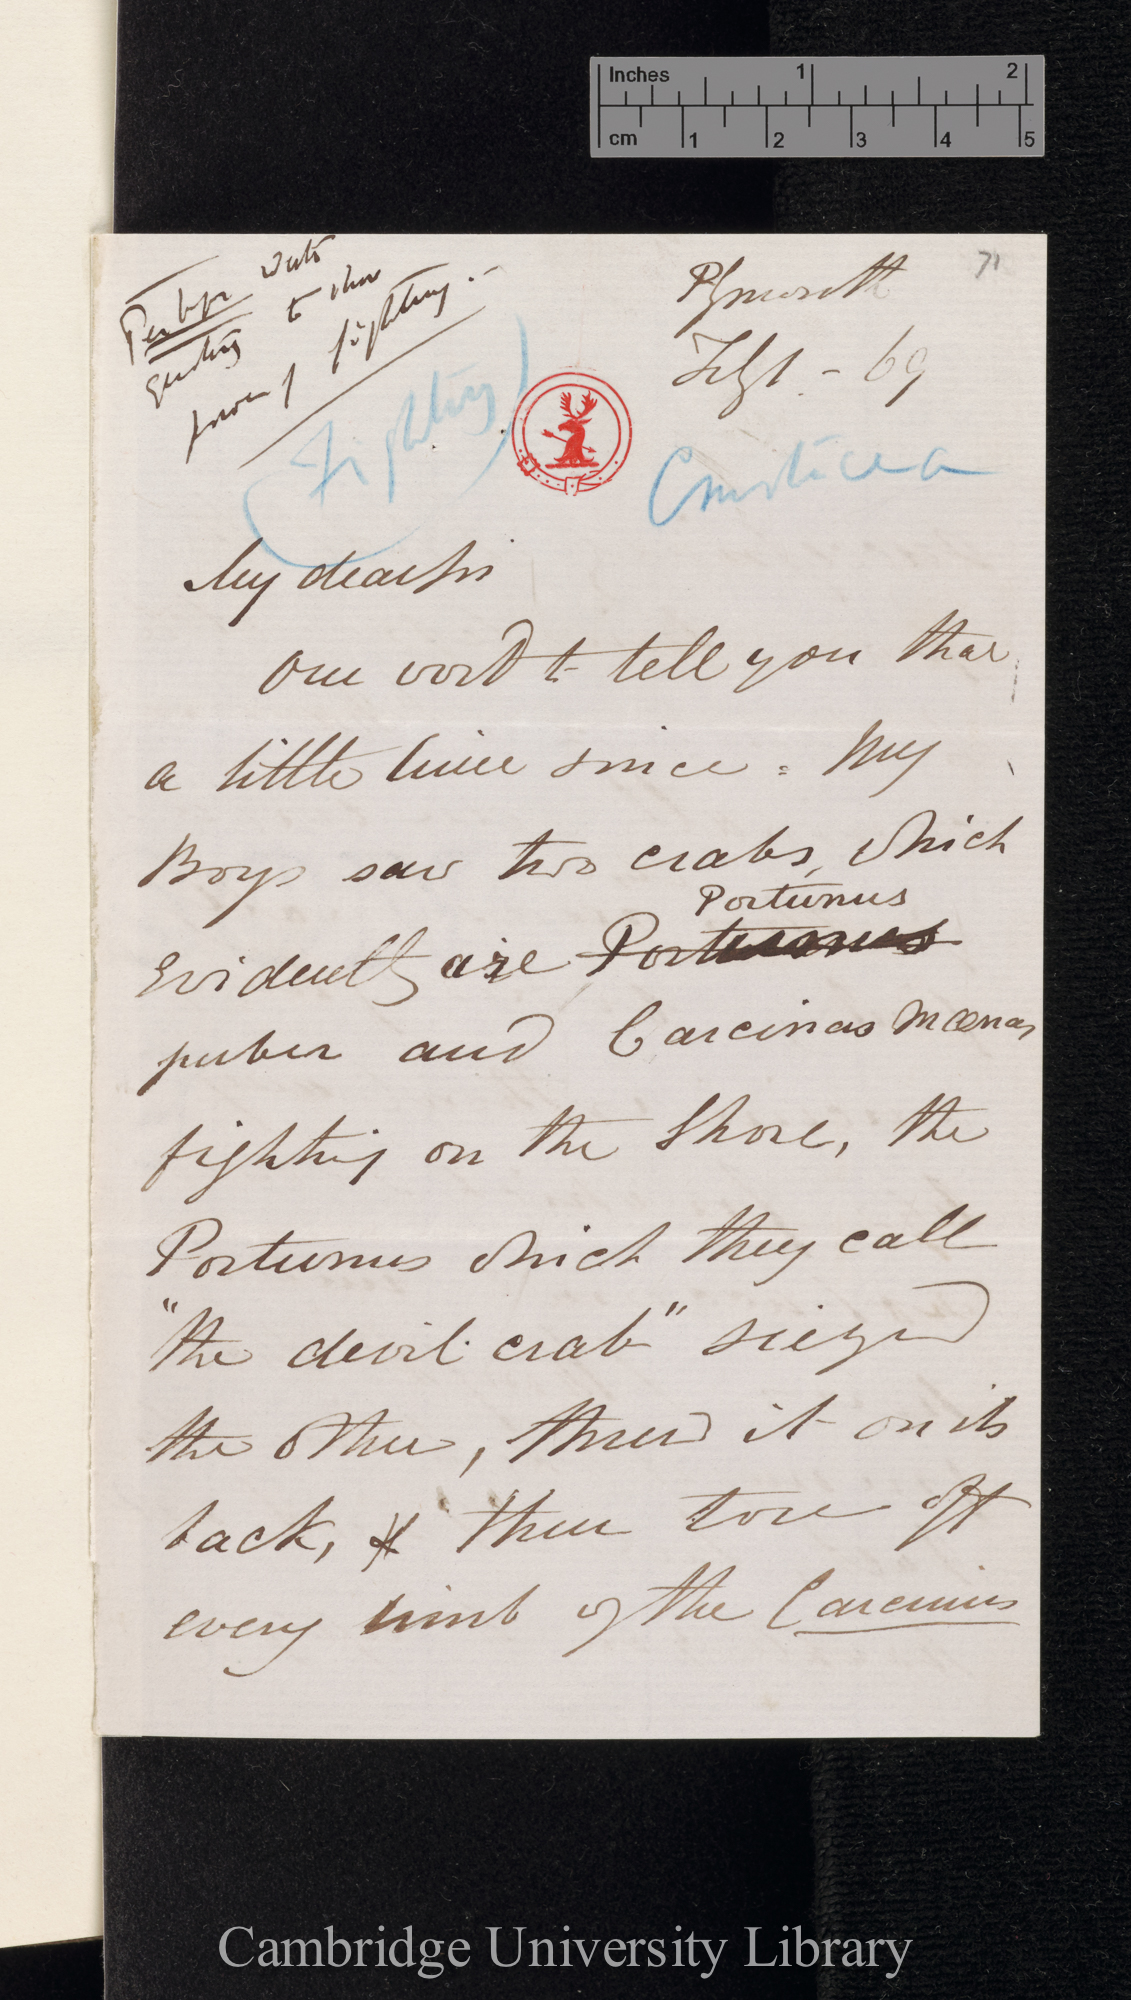 Inches 1 2
cm 1 2 3 4 5
71
Perhaps worth
to show
power of fighting.—
Plymouth
Feby 1. – 69
(Fighting)
Crustacea
My dear Sir
One word to tell you that
a little time since = My
Boys saw two crabs, which
Portunus
Evidently are Portunus
puber and Carcinas Mœnas
fighting on the Shore, the
Portunus which they call
"the devil crab" siezed
the other, threw it on its
back, & then tore off
every limb of the Carcinus
Cambridge University Library